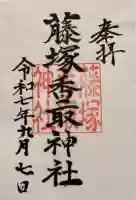 奉拝
藤塚香取神社
令和七年九月七日
藤塚
神社